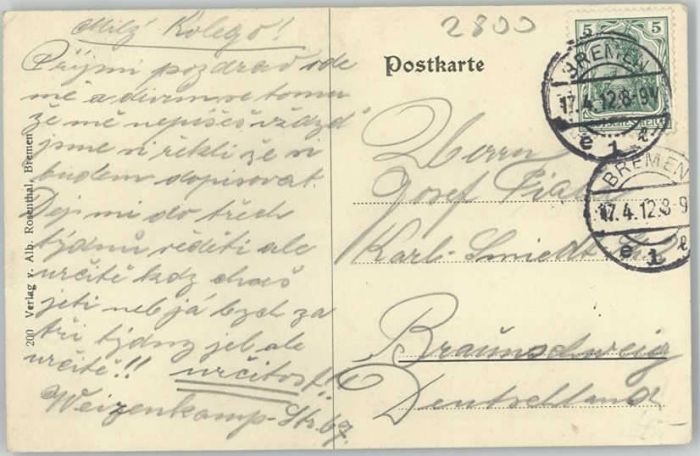 Milý Kolego!
Přijmi pozdrav ode
mě a divim se tomu
že mě nepišeš vždyť
jsme si řekli že si
budem dopisovat.
Dej mi do třech
týdnů věděti ale
určitě kdy chceš
jeti neb já bych za
tři týdny jel ale
určitě!! určitost!!
Weizenkamp-Str. 67.
200 Verlag v. Alb. Rosenthal, Bremen
2800
Postkarte
5 5
BREMEN
17.4.12.8-9V
e 1 e
BREMEN
17.4.12.8-9
e 1 e
Herrn
Josef
Karl-Smiedt
Braunschweig
Deutschland